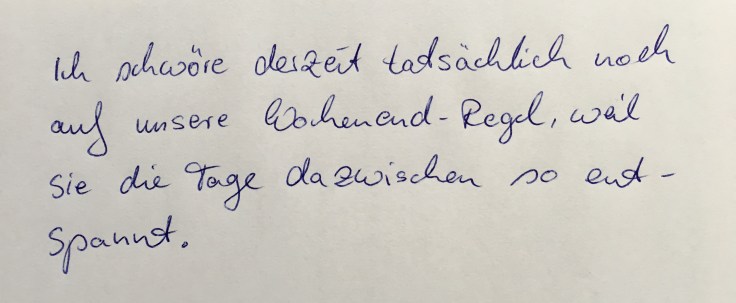 Ich schwöre derzeit tatsächlich noch
auf unsere Wochenend-Regel, weil
sie die Tage dazwischen so ent-
spannt.